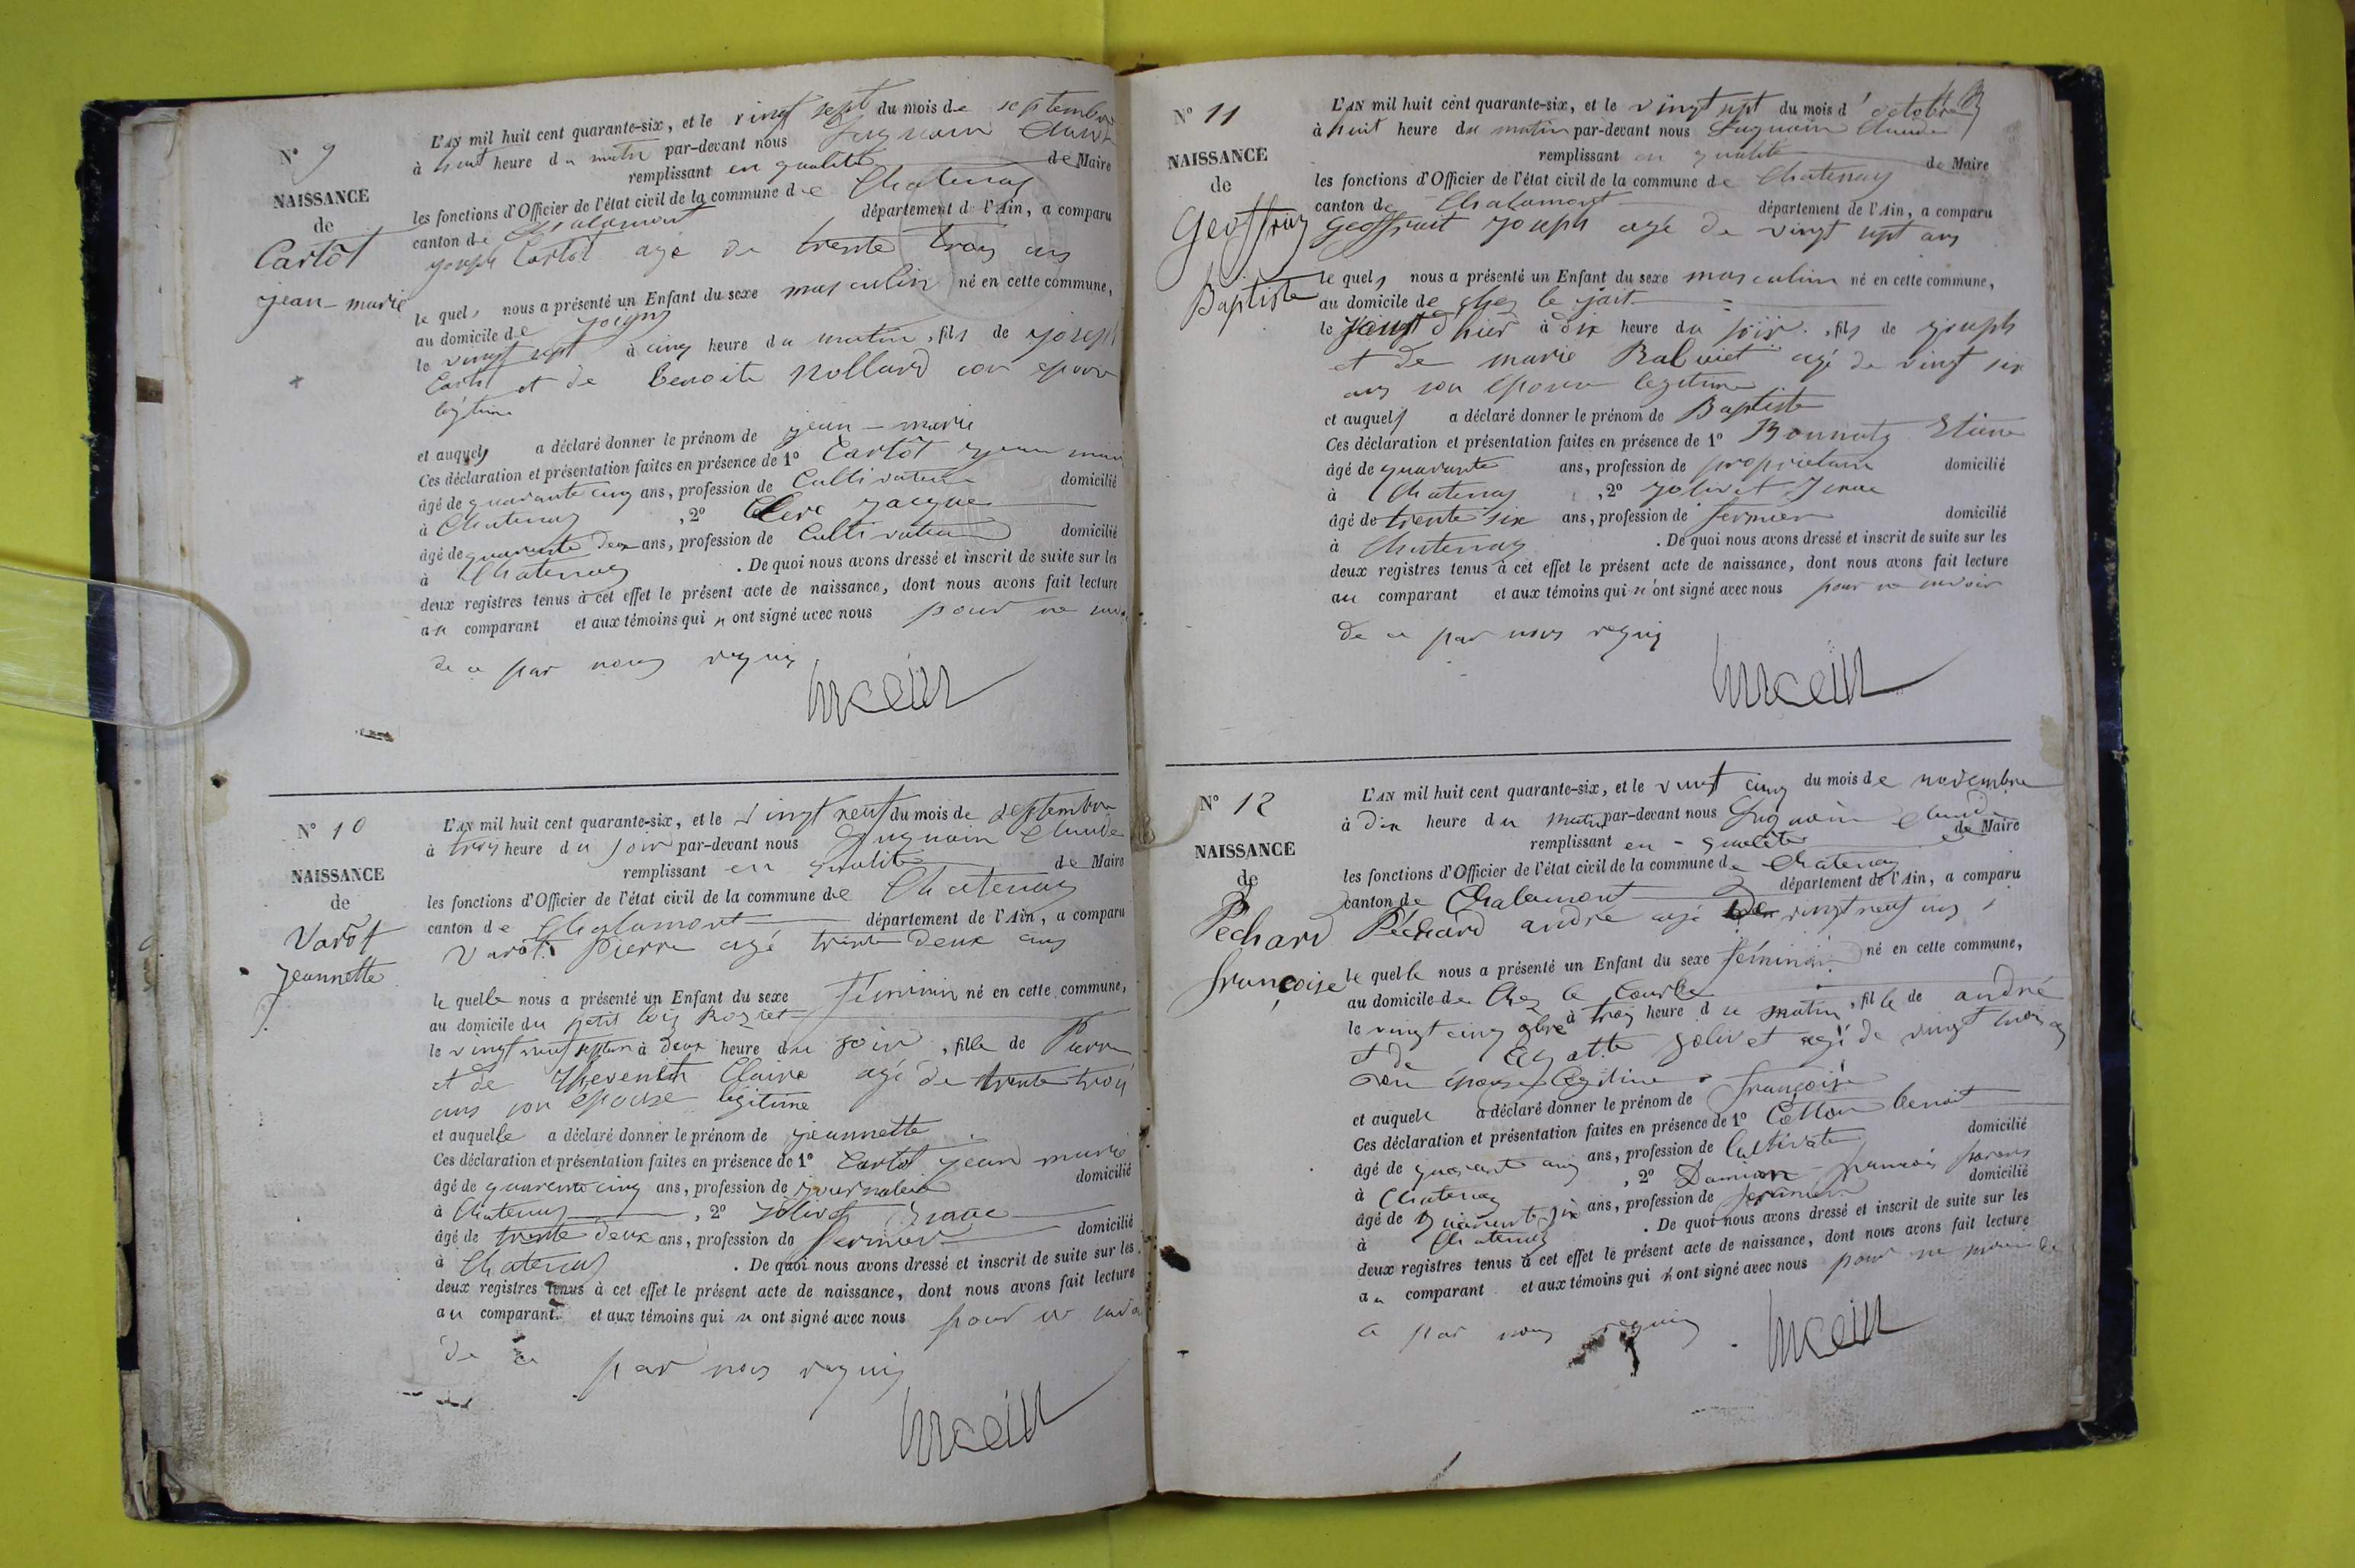 N° 9
NAISSANCE
de
Cartôt
jean-marie
L'AN mil huit cent quarante-six, et le vingt sept du mois de septembre
à huit heure du matin par-devant nous Claude
remplissant en qualité de Maire
les fonctions d'Officier de l'état civil de la commune de Chatenay
canton de Chalamont département de l'Ain, a comparu
joseph Cartôt agé de trente trois ans
le quel nous a présenté un Enfant du sexe masculin né en cette commune,
au domicile de
le vingt sept à cinq heure du matin, fils de joseph
Cartôt et de Benoite Nollard son epouse
légitime
et auquel a déclaré donner le prénom de jean-marie
Ces déclaration et présentation faites en présence de 1° Cartôt jean marie
âgé de quarante cinq ans, profession de Cultivateur domicilié
à Chatenay, 2° Clerc jacque
âgé de quarante deux ans, profession de Cultivateur domicilié
à Chatenay. De quoi nous avons dressé et inscrit de suite sur les
deux registres tenus à cet effet le présent acte de naissance, dont nous avons fait lecture
au comparant et aux témoins qui n ont signé avec nous pour ne
de ce par nous requis
N° 10
NAISSANCE
de
Varôt
Jeannette
L'AN mil huit cent quarante-six, et le vingt neuf du mois de septembre
à trois heure du soir par-devant nous Claude
remplissant en qualité de Maire
les fonctions d'Officier de l'état civil de la commune de Chatenay
canton de Chalamont département de l'Ain, a comparu
Varôt Pierre agé trente deux ans
le quelle nous a présenté un Enfant du sexe féminin né en cette commune,
au domicile du petit bois Roziet
le vingt neuf à deux heure du soir, fille de Pierre
et de Thevenin Claire agé de trente trois
ans son épouse légitime
et auquelle a déclaré donner le prénom de jeannette
Ces déclaration et présentation faites en présence de 1° Cartôt jean marie
âgé de quarente cinq ans, profession de journalier domicilié
à Chatenay, 2° Jolivet
âgé de trente deux ans, profession de fermier domicilié
à Chatenay. De quoi nous avons dressé et inscrit de suite sur les
deux registres tenus à cet effet le présent acte de naissance, dont nous avons fait lecture
au comparant et aux témoins qui n ont signé avec nous pour
de ce par nous requis
N° 11
NAISSANCE
de
Geoffray
Baptiste
L'AN mil huit cent quarante-six, et le vingt sept du mois d'octobre
à huit heure du matin par-devant nous Claude
remplissant en qualité de Maire
les fonctions d'Officier de l'état civil de la commune de Chatenay
canton de Chalamont département de l'Ain, a comparu
Geoffrait joseph agé de vingt sept ans
le quel nous a présenté un Enfant du sexe masculin né en cette commune,
au domicile de chez le
le d'hier à dix heure du soir, fils de joseph
et de marie agé de vingt six
ans son épouse legitime
et auquel a déclaré donner le prénom de Baptiste
Ces déclaration et présentation faites en présence de 1°
âgé de quarante ans, profession de proprietaire domicilié
à Chatenay, 2° jolivet
âgé de trente six ans, profession de fermier domicilié
à Chatenay. De quoi nous avons dressé et inscrit de suite sur les
deux registres tenus à cet effet le présent acte de naissance, dont nous avons fait lecture
au comparant et aux témoins qui n'ont signé avec nous pour ne savoir
de ce par nous requis
N° 12
NAISSANCE
de
Pechard
françoise
L'AN mil huit cent quarante-six, et le vingt cinq du mois de novembre
à dix heure du matin par-devant nous Claude
remplissant en qualité de Maire
les fonctions d'Officier de l'état civil de la commune de Chatenay
canton de Chalamont département de l'Ain, a comparu
Péchard andré agé de vingt neuf ans
le quelle nous a présenté un Enfant du sexe féminin né en cette commune,
au domicile de Chez le Courbe
le vingt cinq 9bre à trois heure du matin, fille de andré
et de Agatte jolivet agé de vingt trois
son épouse légitime
et auquele a déclaré donner le prénom de françoise
Ces déclaration et présentation faites en présence de 1° Cotton benoit
âgé de quarante cinq ans, profession de Cultivateur domicilié
à Chatenay, 2° Damian francois
âgé de quarente six ans, profession de fermier domicilié
à Chatenay. De quoi nous avons dressé et inscrit de suite sur les
deux registres tenus à cet effet le présent acte de naissance, dont nous avons fait lecture
au comparant et aux témoins qui n ont signé avec nous pour ne de
ce par nous requis